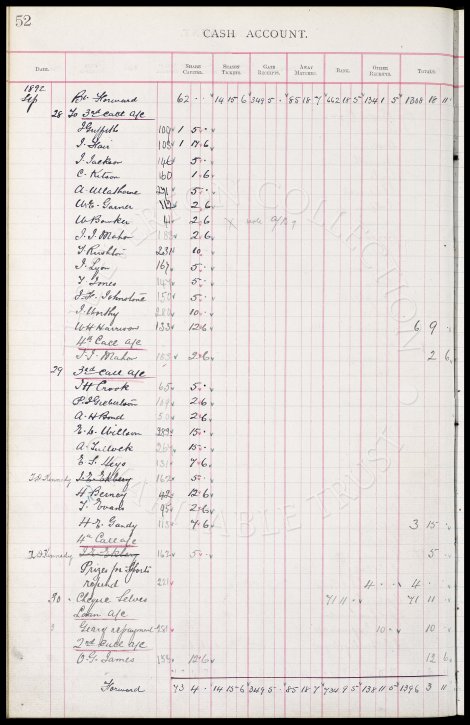 52
CASH ACCOUNT.
DATE. SHARE CAPITAL. SEASON TICKETS. GATE RECEIPTS. AWAY MATCHES. BANK. OTHER RECEIPTS. TOTALS.
1892
Sep Bt. Forward 62 · · 14 15 6 349 5 · 85 18 7 662 18 5 134 1 5 1308 18 11
28 To 3rd Call a/c
J Griffith 100 1 5 ·
J. Hair 108 1 17 6
J. Jackson 146 5 ·
C. Kitson 160 1 6
A. W 291 5 ·
W. E. Garner 112 2 6
W. Bowker 4 2 6
J. J. Mahon 183 2 6
T Rushton 231 10 ·
J. Lyon 167 5 ·
T Jones 5 ·
J. H. Johnstone 150 5 ·
J. Worthy 280 10 ·
W H Harrison 133 12 6 6 9 ·
4th Call a/c
J. J. Mahon 183 2 6 2 6
29 3rd Call a/c
J H Crook 65 5 ·
P. J 2 6
A. H Bond 50 2 6
E. L. Willson 289 15 ·
A. Tullock 264 15 ·
E. S. Heys 131 7 6
T. B. Kennedy J. E. Ekberg 162 5 ·
H. Berney 42 12 6
T. Evans 95 2 6
H. E. Gandy 115 7 6 3 15 ·
4th Call a/c
T. B. Kennedy J. E. Ekberg 162 5 · 5 ·
Prizes for Sports
refund 221 4 · · 4 · ·
30 Cheque Selves 71 11 · 71 11 ·
Loan a/c
Geary repayment 281 10 · 10 ·
2nd Call a/c
O. G. James 12 6 12 6
Forward 73 4 · 14 15 6 349 5 · 85 18 7 734 9 5 138 11 5 1396 3 11